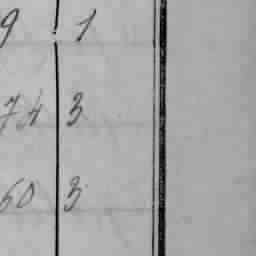 9 1
74 3
60 3